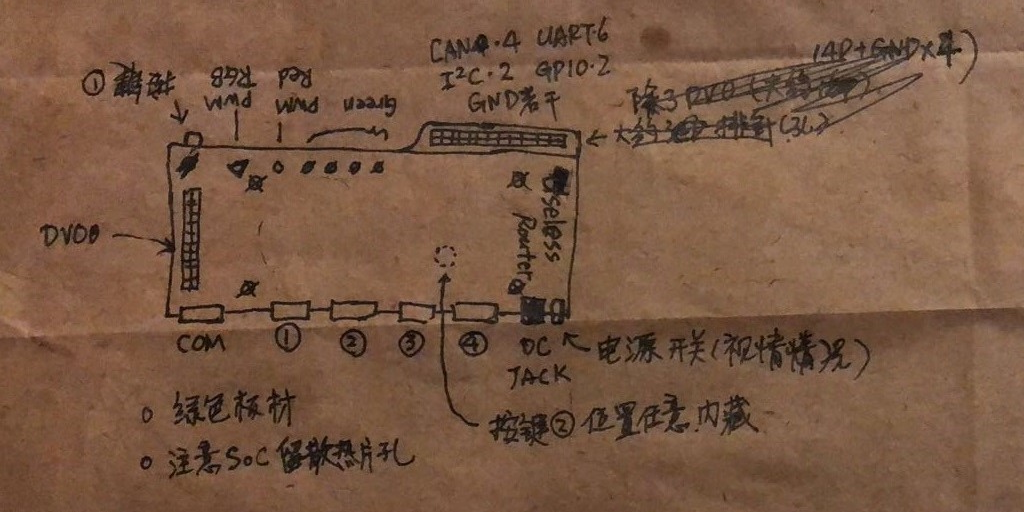 CAN·4 UART·6
I²C·2 GPIO·2
GND若干
14P+GND×4)
除了DVO(大约
大约 排针(孔)
①按键
PWM RGB
PWM Red
Green
DVO0
Useless
Router
COM
① ② ③ ④ DC
JACK
电源开关(视情情况)
按键②位置任意,内藏
○ 绿色板材
○ 注意SoC留散热片孔